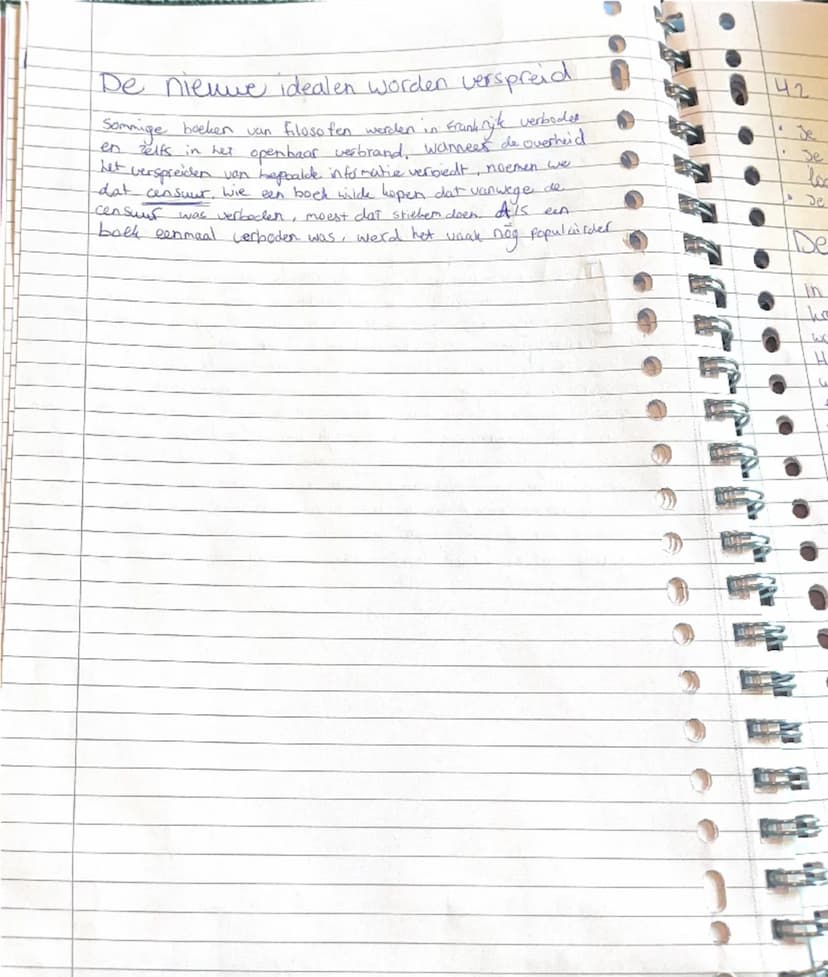 De nieuwe idealen worden verspreid
Sommige boeken van filosofen werden in Frankrijk verboden
en zelfs in het openbaar verbrand. Wanneer de overheid
het verspreiden van bepaalde informatie verbiedt, noemen we
dat censuur. Wie een boek wilde kopen dat vanwege de
censuur was verboden, moest dat stiekem doen. Als een
boek eenmaal verboden was, werd het vaak nóg populairder
42
• Je
• Je
• Je
De
In